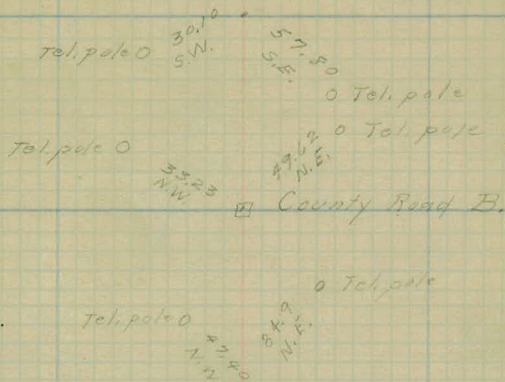 Tel. pole O
30.10
S.W.
57.80
S.E.
O Tel. pole
O Tel. pole
Tel. pole O
33.23
N.W.
49.62
N.E.
County Road B.
O Tel. pole
Tel. pole O
47.40
84.9
N.E.